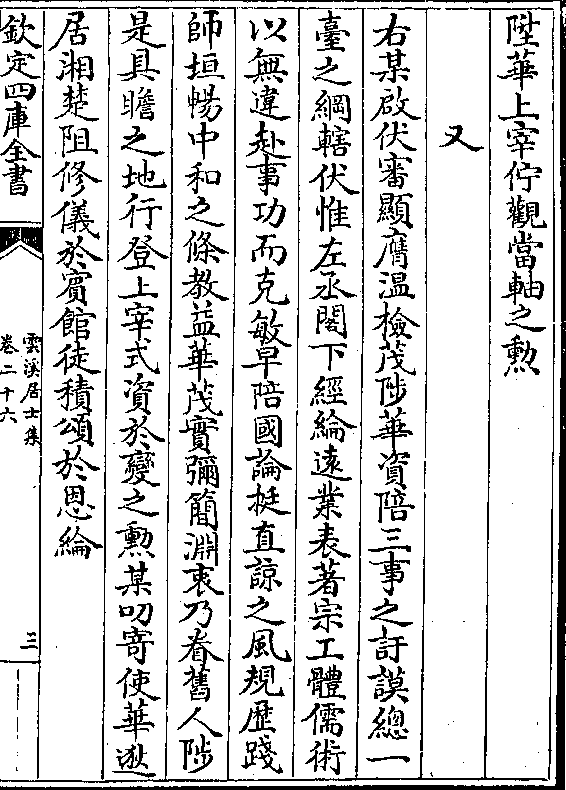 陞華上宰佇觀當軸之勲
又
右某啟伏審顯膺温檢茂陟華資陪三事之訏謨總一
臺之綱轄伏惟左丞閣下經綸逺業表著宗工體儒術
以無違赴事功而克敏早陪國論挺直諒之風規歴踐
師垣暢中和之條教益華茂實彌簡淵衷乃眷舊人陟
是具瞻之地行登上宰式資於變之勲某叨寄使華逖
居湘楚阻修儀於賓館徒積頌於恩綸
欽定四庫全書
雲溪居士集
卷二十六
三